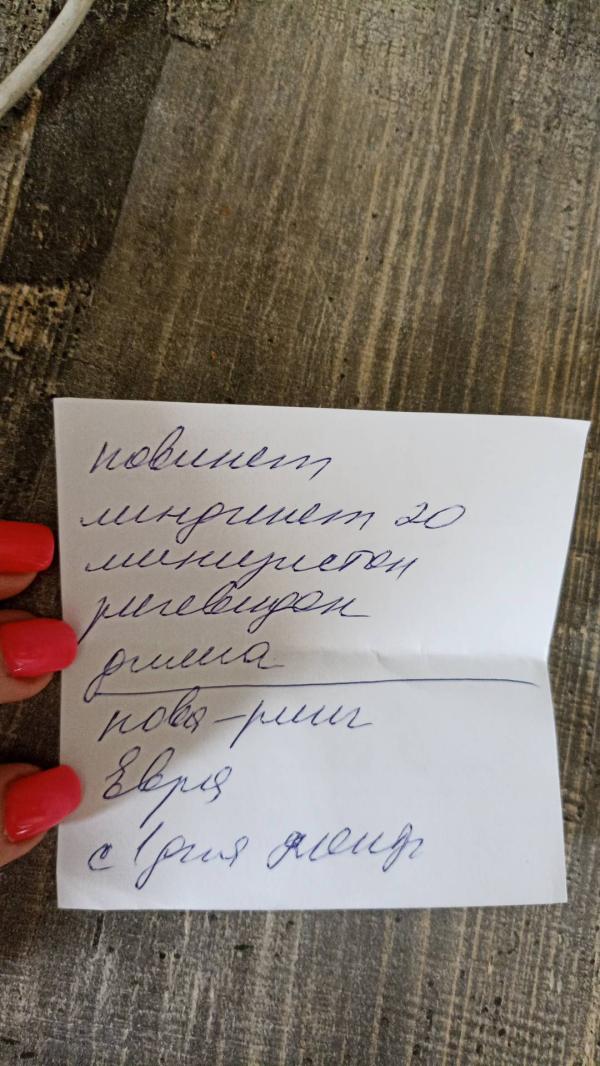 новинет
линдинет 20
минизистон
ригевидон
димиа
нова-ринг
Евра
с 1 дня